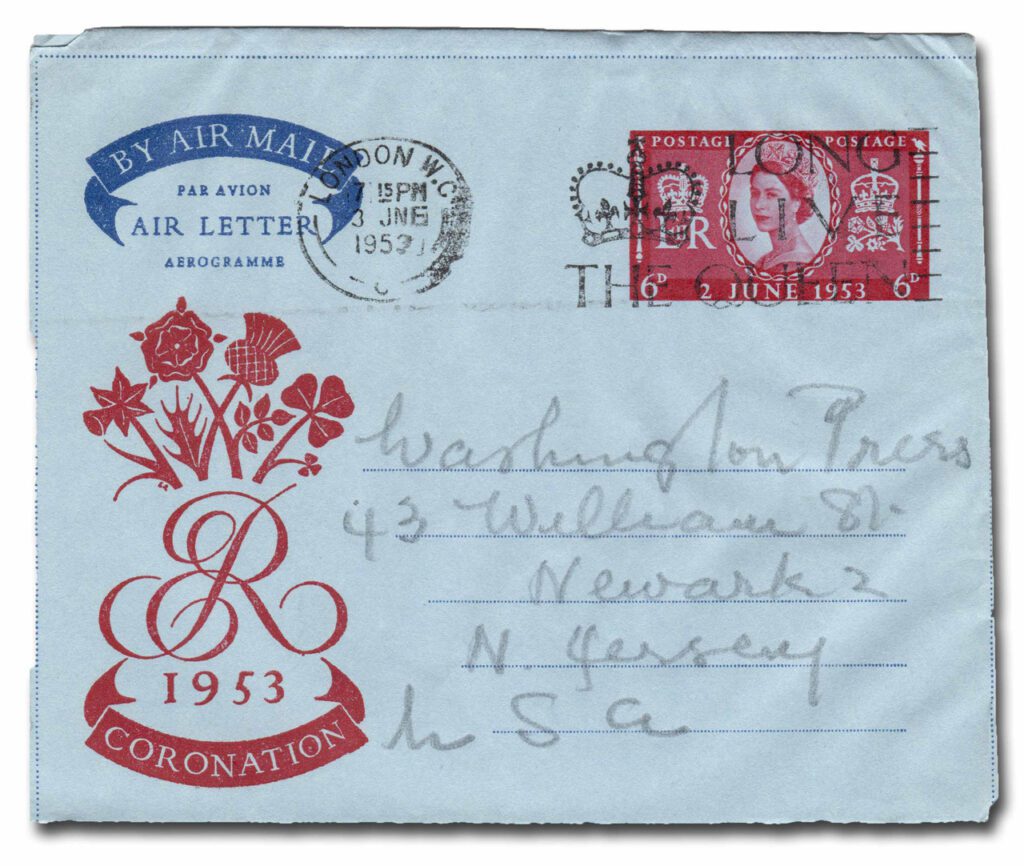 BY AIR MAIL
PAR AVION
AIR LETTER
AEROGRAMME
LONDON W.C.
7 15 PM
3 JNE
1953
C
LONG
LIVE
THE QUEEN
POSTAGE POSTAGE
E R
6D 2 JUNE 1953 6D
Washington Press
43 William St.
Newark 2
N. Jersey
U S A
ER
1953
CORONATION